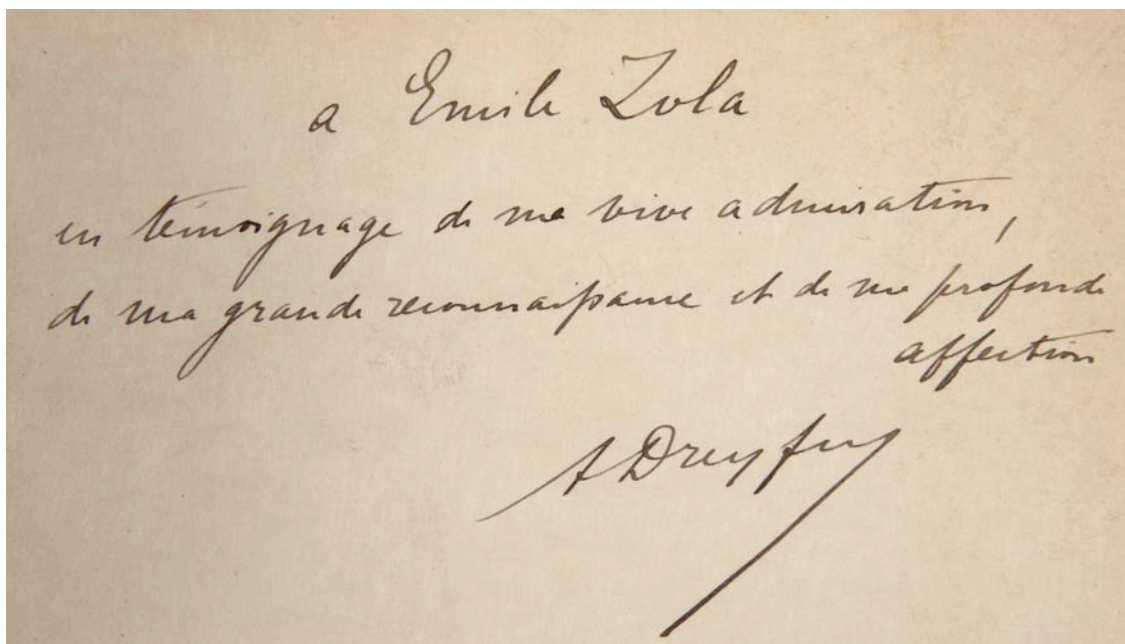 a Emile Zola
en témoignage de ma vive admiration,
de ma grande reconnaissance et de ma profonde
affection
ADreyfus